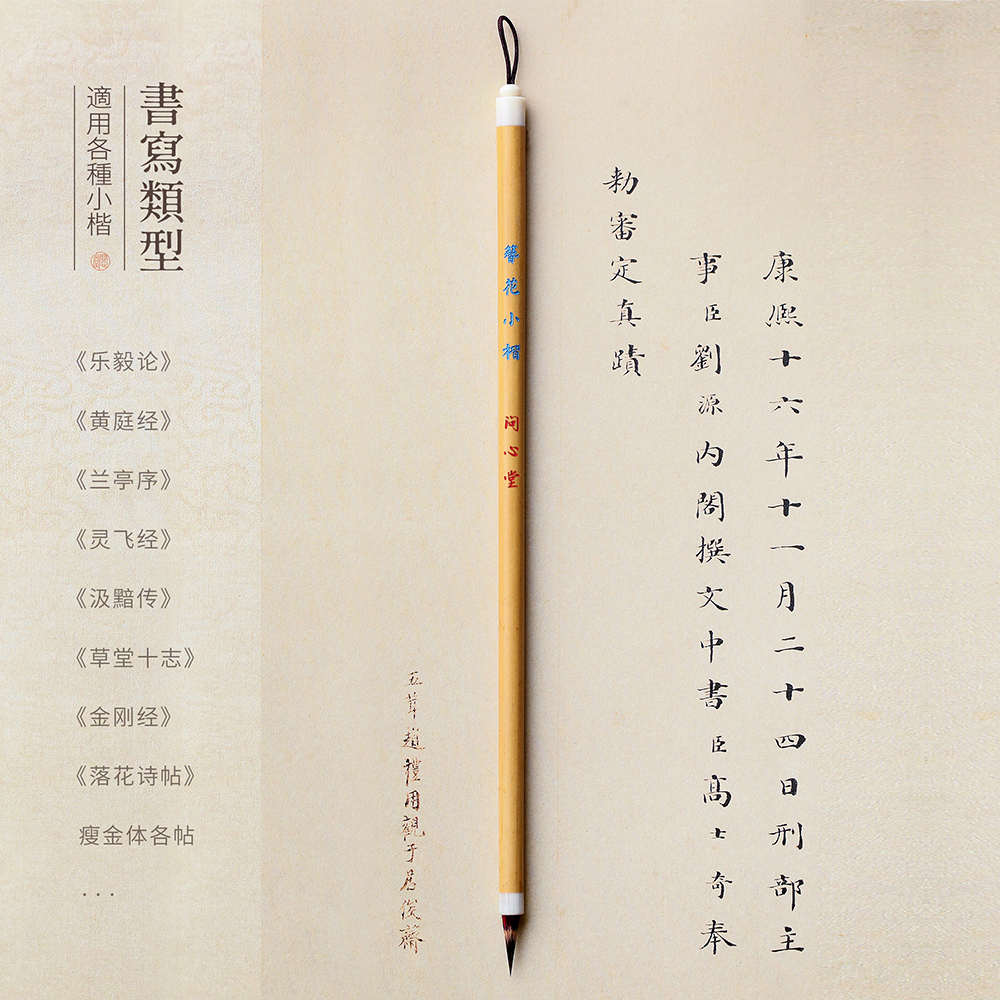 書寫類型
適用各種小楷
《乐毅论》
《黄庭经》
《兰亭序》
《灵飞经》
《汲黯传》
《草堂十志》
《金刚经》
《落花诗帖》
瘦金体各帖
...
簪花小楷
问心堂
康熙十六年十一月二十四日刑部主
事臣劉源内閣撰文中書臣高士奇奉
勅審定真蹟